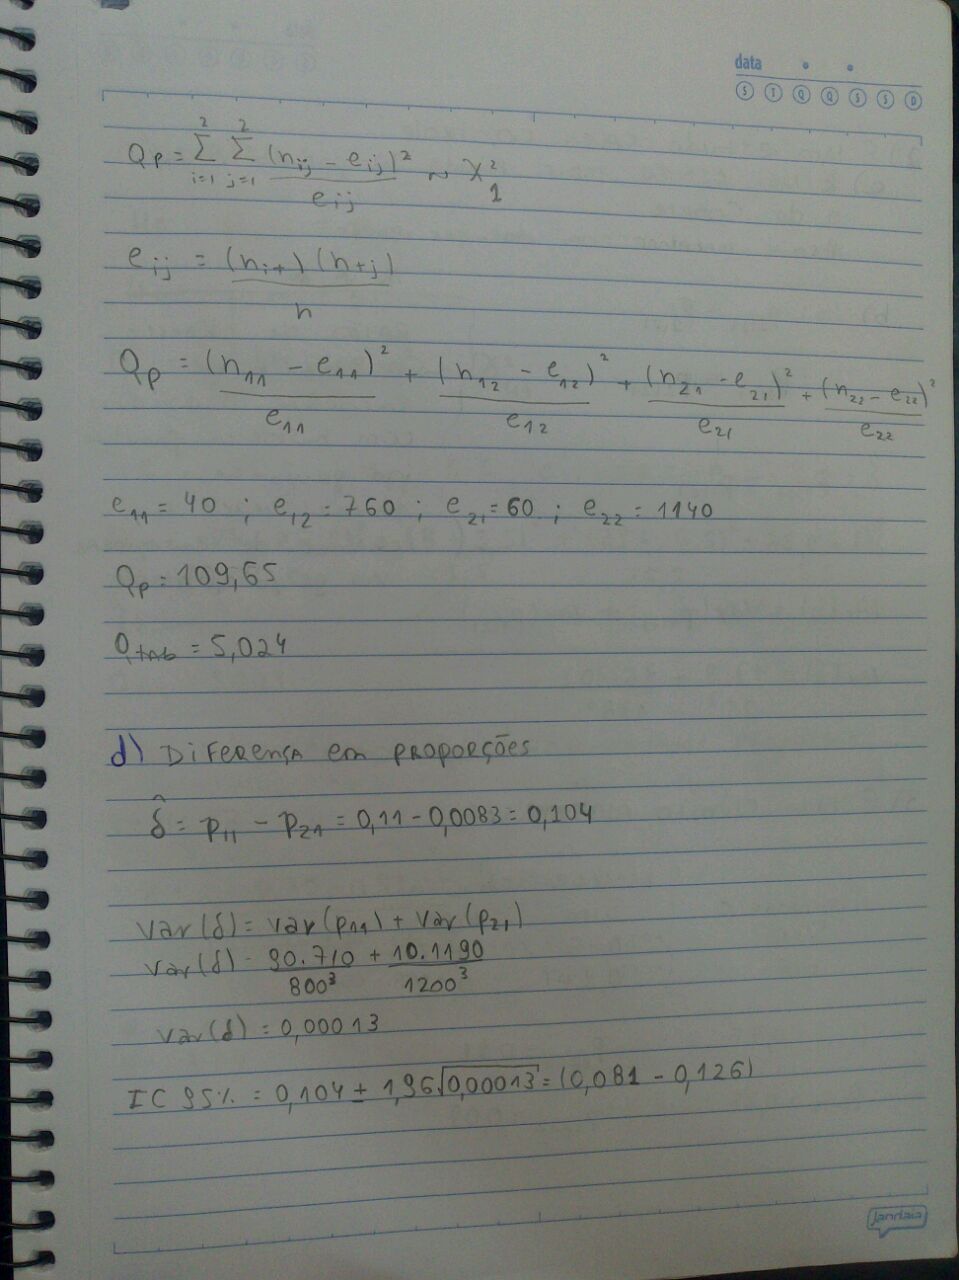 data
S T Q Q S S D
Qp = Σ Σ (nij - eij)² / eij ~ χ²1
2 2
i=1 j=1
eij = (ni+) (n+j) / n
Qp = (n11 - e11)² / e11 + (n12 - e12)² / e12 + (n21 - e21)² / e21 + (n22 - e22)² / e22
e11 = 40 ; e12 = 760 ; e21 = 60 ; e22 = 1140
Qp = 109,65
Qtab = 5,024
d) Diferença em proporções
δ̂ = p11 - p21 = 0,11 - 0,0083 = 0,104
Var(δ) = Var(p11) + Var(p21)
Var(δ) = 90.710 / 800³ + 10.1190 / 1200³
Var(δ) = 0,00013
IC 95% = 0,104 ± 1,96√0,00013 = (0,081 - 0,126)
jandaia